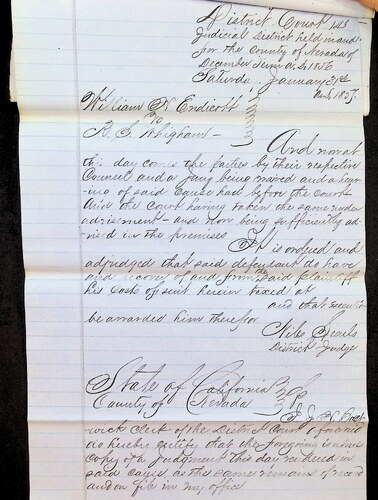 District Court
Judicial District held in and
for the County of Nevada
December Term A.D. 1856
Saturday January 31st
A.D. 1857.
William Endicott
vs
R. S. Whigham
And now at
this day comes the parties by their respective
Counsel and a Jury being waived and a hear-
ing of said Cause had before the Court
and the Court having taken the same under
advisement and now being sufficiently ad-
vised in the premises
It is ordered and
adjudged that said defendant do have
and recover of and from the said plaintiff
his costs of suit herein taxed at
and that execution
be awarded him therefor
Niles Searls
District Judge
State of California
County of Nevada
Clerk of the District Court
do hereby certify that the foregoing is a true
Copy of a Judgment this day rendered in
said Cause as the same remains of record
and on file in my office